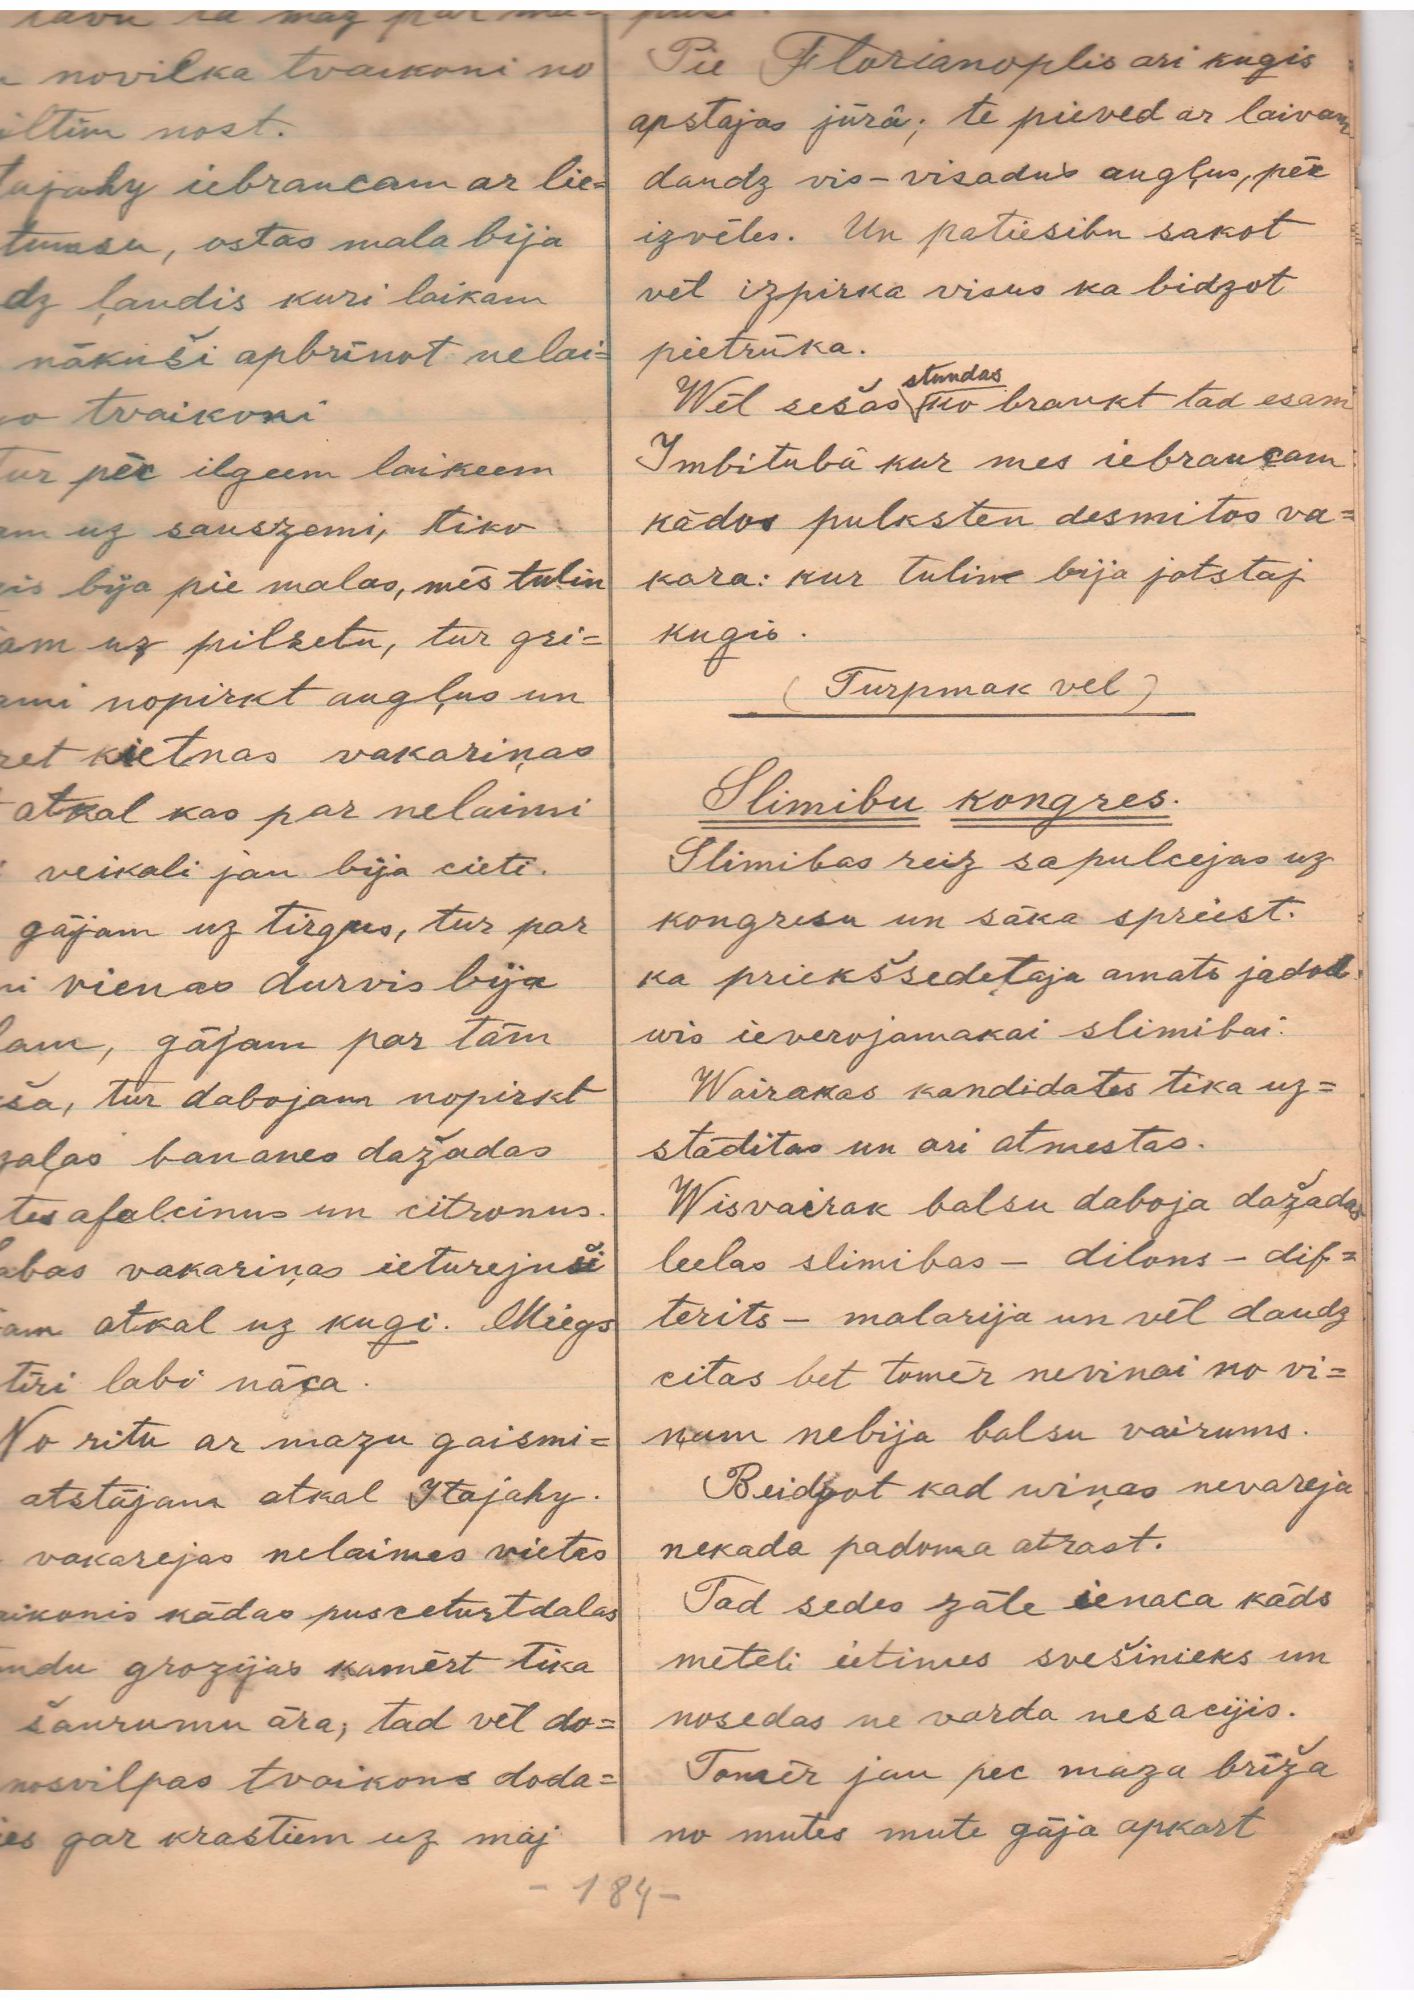 novilka tvaikoni no
nost.
iebraucam ar lie=
tumsu, ostas mala bija
ļaudis kuri laikam
nākuši apbrīnot nelai=
tvaikoni
pēc ilgeem laikeem
uz sauszemi, tiko
bija pie malas, mēs tulin
uz pilsetu, tur gri=
nopirkt augļus un
kietnas vakariņas
atkal kas par nelaimi
veikali jau bija cieti.
gājam uz tirgus, tur par
vienas durvis bija
gājam par tām
tur dabojam nopirkt
bananes dažadas
afelcinus un citronus.
vakariņas ieturejuši
atkal uz kugi. Miegs
labi nāca.
No ritu ar mazu gaismi=
atstājam atkal Itajahy.
vakarejas nelaimes vietas
kādas pusceturtdalas
grozijas kamērt tika
šaurumu āra, tad vēl do=
nosvilpas tvaikons doda=
gar krastiem uz māj
Pie Florianoplis ari kugis
apstajas jūrā; te pieved ar laivam
daudz vis-visadus augļus, pēc
izvēles. Un patiesibu sakot
vēl izpirka visus ka bidzot
pietrūka.
Wēl sešas stundas ko braukt tad esam
Imbitubā kur mes iebraucam
kādos pulksten desmitos va=
kara: kur tulin bija jatstaj
kugis.
(Turpmak vel)
Slimibu kongres.
Slimibas reiz sapulcejas uz
kongresu un sāka spriest.
ka priekšsedetaja amats jadod
wis ieverojamakai slimibai.
Wairakas kandidates tika uz=
stāditas un ari atmestas.
Wisvairak balsu daboja dažadas
leelas slimibas - dilons - dif=
terits - malarija un vēl daudz
citas bet tomēr nevinai no vi=
ņam nebija balsu vairums.
Beidzot kad wiņas nevareja
nekada padoma atrast.
Tad sedes zāle ienaca kāds
mēteli ietinies svešinieks un
nosedas ne varda nesacijis.
Tomēr jau pec maza brīža
no mutes mute gāja apkart
- 184 -